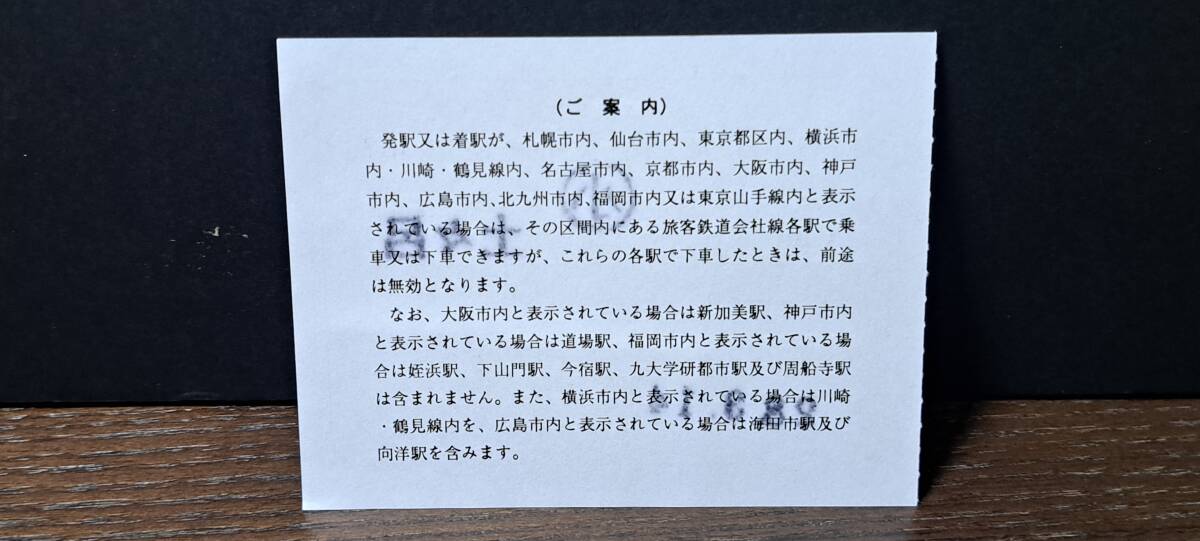 (ご案内)
発駅又は着駅が、札幌市内、仙台市内、東京都区内、横浜市
内・川崎・鶴見線内、名古屋市内、京都市内、大阪市内、神戸
市内、広島市内、北九州市内、福岡市内又は東京山手線内と表示
されている場合は、その区間内にある旅客鉄道会社線各駅で乗
車又は下車できますが、これらの各駅で下車したときは、前途
は無効となります。
なお、大阪市内と表示されている場合は新加美駅、神戸市内
と表示されている場合は道場駅、福岡市内と表示されている場
合は姪浜駅、下山門駅、今宿駅、九大学研都市駅及び周船寺駅
は含まれません。また、横浜市内と表示されている場合は川崎
・鶴見線内を、広島市内と表示されている場合は海田市駅及び
向洋駅を含みます。